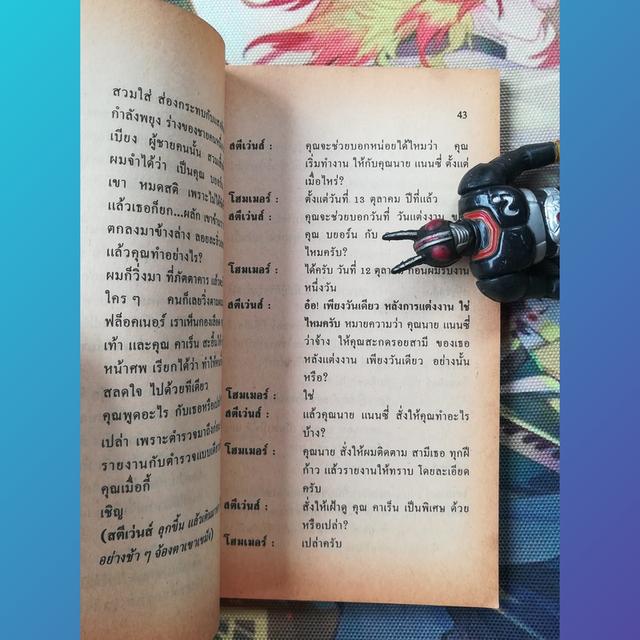 สวมใส่ ส่องกระทบกับ
กำลังพยุง ร่างของชายคน
เบียง ผู้ชายคนนั้น สวม
ผมจำได้ว่า เป็นคุณ
เขา หมดสติ เพราะไม่ได้
แล้วเธอก็ยก...ผลัก เขาข้าม
ตกลงมาข้างล่าง ลอยละลิ่ว
แล้วคุณทำอย่างไร?
ผมก็วิ่งมา ที่ภัตตาคาร แล้ว
ใคร ๆ คนก็เลยวิ่งตาม
ฟล็อคเนอร์ เราเห็นกองเลือด
เท้า และคุณ คาเร็น สะอื้น
หน้าศพ เรียกได้ว่า ทำให้
สลดใจ ไปด้วยทีเดียว
คุณพูดอะไร กับเธอหรือ
เปล่า เพราะตำรวจมาถึง
รายงานกับตำรวจแบบเดียว
คุณเมื่อกี้
เชิญ
(สตีเว่นส์ ลุกขึ้น แล้วเดิน
อย่างช้า ๆ จ้องตาเขาเขม็ง)
43
สตีเว่นส์ : คุณจะช่วยบอกหน่อยได้ไหมว่า คุณ
เริ่มทำงาน ให้กับคุณนาย แนนซี่ ตั้งแต่
เมื่อไหร่?
โฮมเมอร์ : ตั้งแต่วันที่ 13 ตุลาคม ปีที่แล้ว
สตีเว่นส์ : คุณจะช่วยบอกวันที่ วันแต่งงาน
คุณ บยอร์น กับ
ไหมครับ?
โฮมเมอร์ : ได้ครับ วันที่ 12 ตุลาคม ก่อนผมรับงาน
หนึ่งวัน
สตีเว่นส์ : อ๋อ! เพียงวันเดียว หลังการแต่งงาน ใช่
ไหมครับ หมายความว่า คุณนาย แนนซี่
ว่าจ้าง ให้คุณสะกดรอยสามี ของเธอ
หลังแต่งงาน เพียงวันเดียว อย่างนั้น
หรือ?
โฮมเมอร์ : ใช่
สตีเว่นส์ : แล้วคุณนาย แนนซี่ สั่งให้คุณทำอะไร
บ้าง?
โฮมเมอร์ : คุณนาย สั่งให้ผมติดตาม สามีเธอ ทุกฝี
ก้าว แล้วรายงานให้ทราบ โดยละเอียด
ครับ
สตีเว่นส์ : สั่งให้เฝ้าดู คุณ คาเร็น เป็นพิเศษ ด้วย
หรือเปล่า?
โฮมเมอร์ : เปล่าครับ